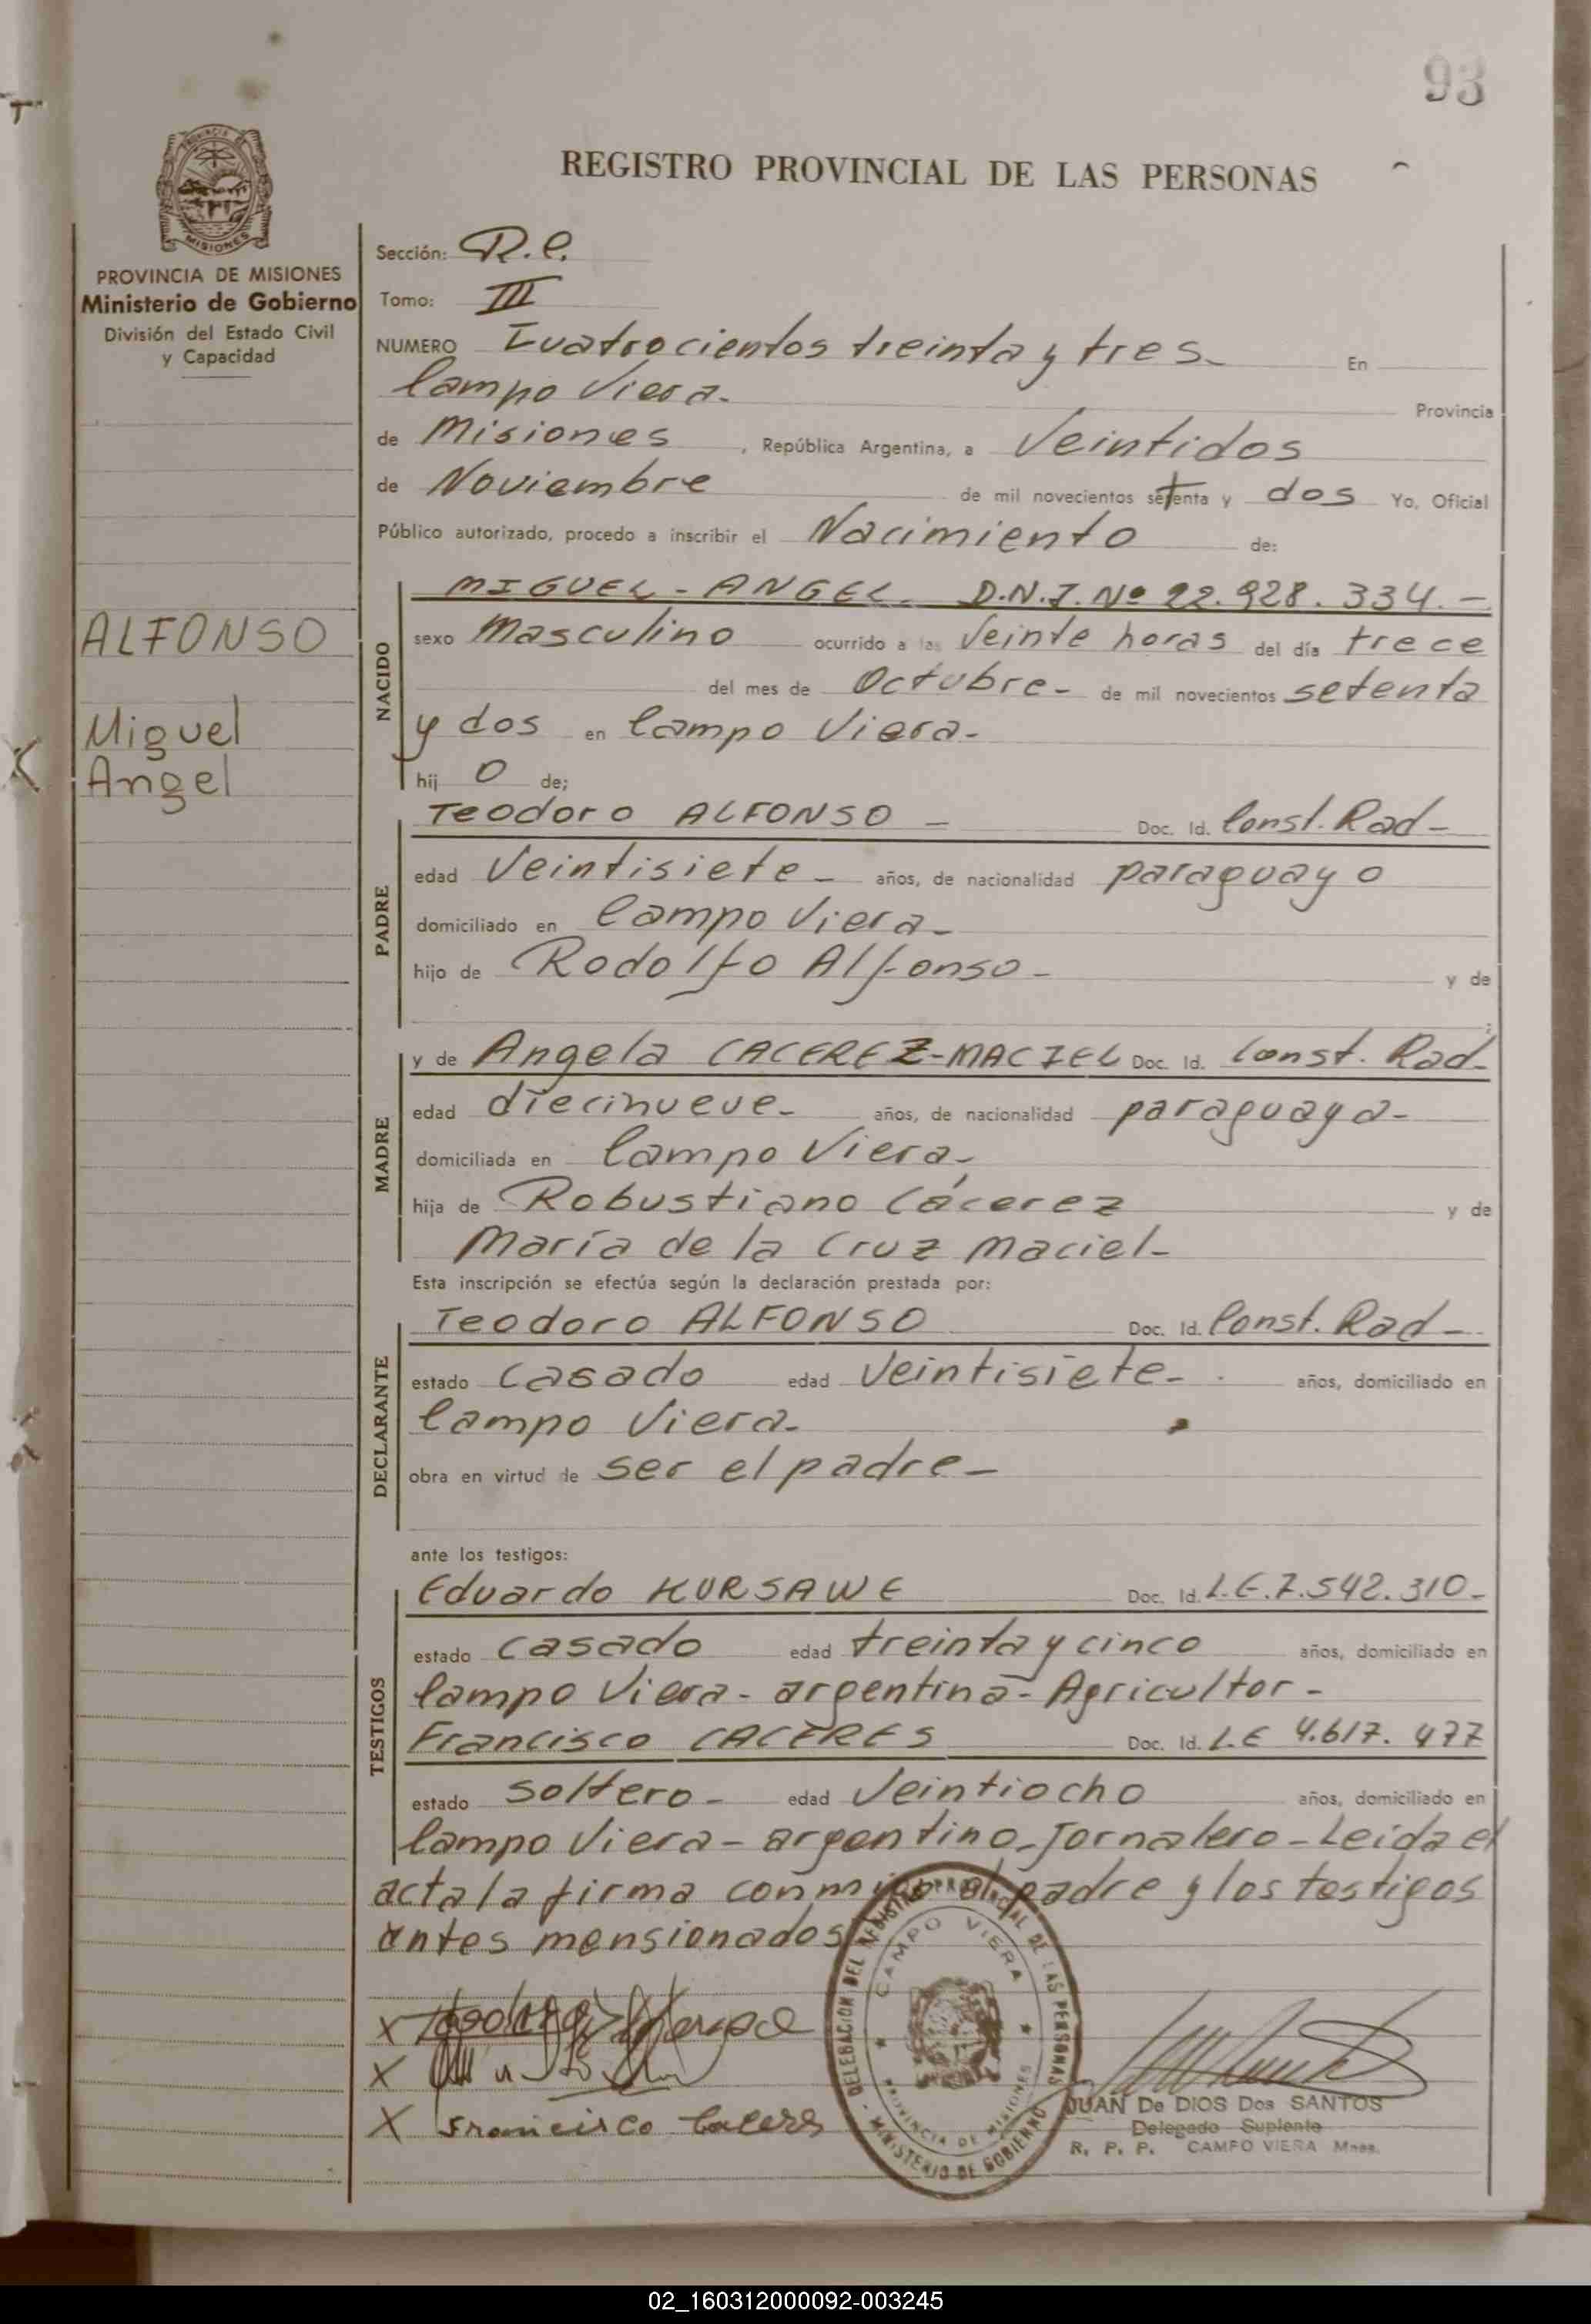 93
REGISTRO PROVINCIAL DE LAS PERSONAS
PROVINCIA DE MISIONES
Ministerio de Gobierno
División del Estado Civil
y Capacidad
ALFONSO
Miguel
Angel
Sección: R.C.
Tomo: III
NUMERO Cuatrocientos treinta y tres- En
Campo Viera- Provincia
de Misiones, República Argentina, a Veintidos
de Noviembre de mil novecientos setenta y dos Yo, Oficial
Público autorizado, procedo a inscribir el Nacimiento de:
NACIDO
MIGUEL-ANGEL- D.N.I. Nº 22.928.334.-
sexo Masculino ocurrido a las Veinte horas del día trece
del mes de Octubre- de mil novecientos setenta
y dos en Campo Viera-
hij o de;
PADRE
Teodoro ALFONSO- Doc. Id. Const. Rad-
edad Veintisiete- años, de nacionalidad paraguayo
domiciliado en Campo Viera-
hijo de Rodolfo Alfonso- y de
MADRE
y de Angela CACEREZ-MACIEL Doc. Id. Const. Rad-
edad diecinueve- años, de nacionalidad paraguaya-
domiciliada en Campo Viera-
hija de Robustiano Cácerez y de
María de la Cruz Maciel-
Esta inscripción se efectúa según la declaración prestada por:
DECLARANTE
Teodoro ALFONSO Doc. Id. Const. Rad-
estado Casado edad Veintisiete- años, domiciliado en
Campo Viera-
obra en virtud de ser el padre-
ante los testigos:
TESTIGOS
Eduardo KURSAWE Doc. Id. L.E. 7.542.310-
estado Casado edad treinta y cinco años, domiciliado en
Campo Viera- argentina- Agricultor-
Francisco CACERES Doc. Id. L.E 4.617.477
estado Soltero- edad Veintiocho años, domiciliado en
Campo Viera- argentino- Jornalero- Leida el
acta la firma conmigo el padre y los testigos
antes mensionados
X
X
X Francisco Caceres
DELEGACION DEL REGISTRO PROVINCIAL DE LAS PERSONAS
CAMPO VIERA
PROVINCIA DE MISIONES
MINISTERIO DE GOBIERNO
JUAN De DIOS Dos SANTOS
Delegado Suplente
R. P. P. CAMPO VIERA Mnes.
02_160312000092-003245